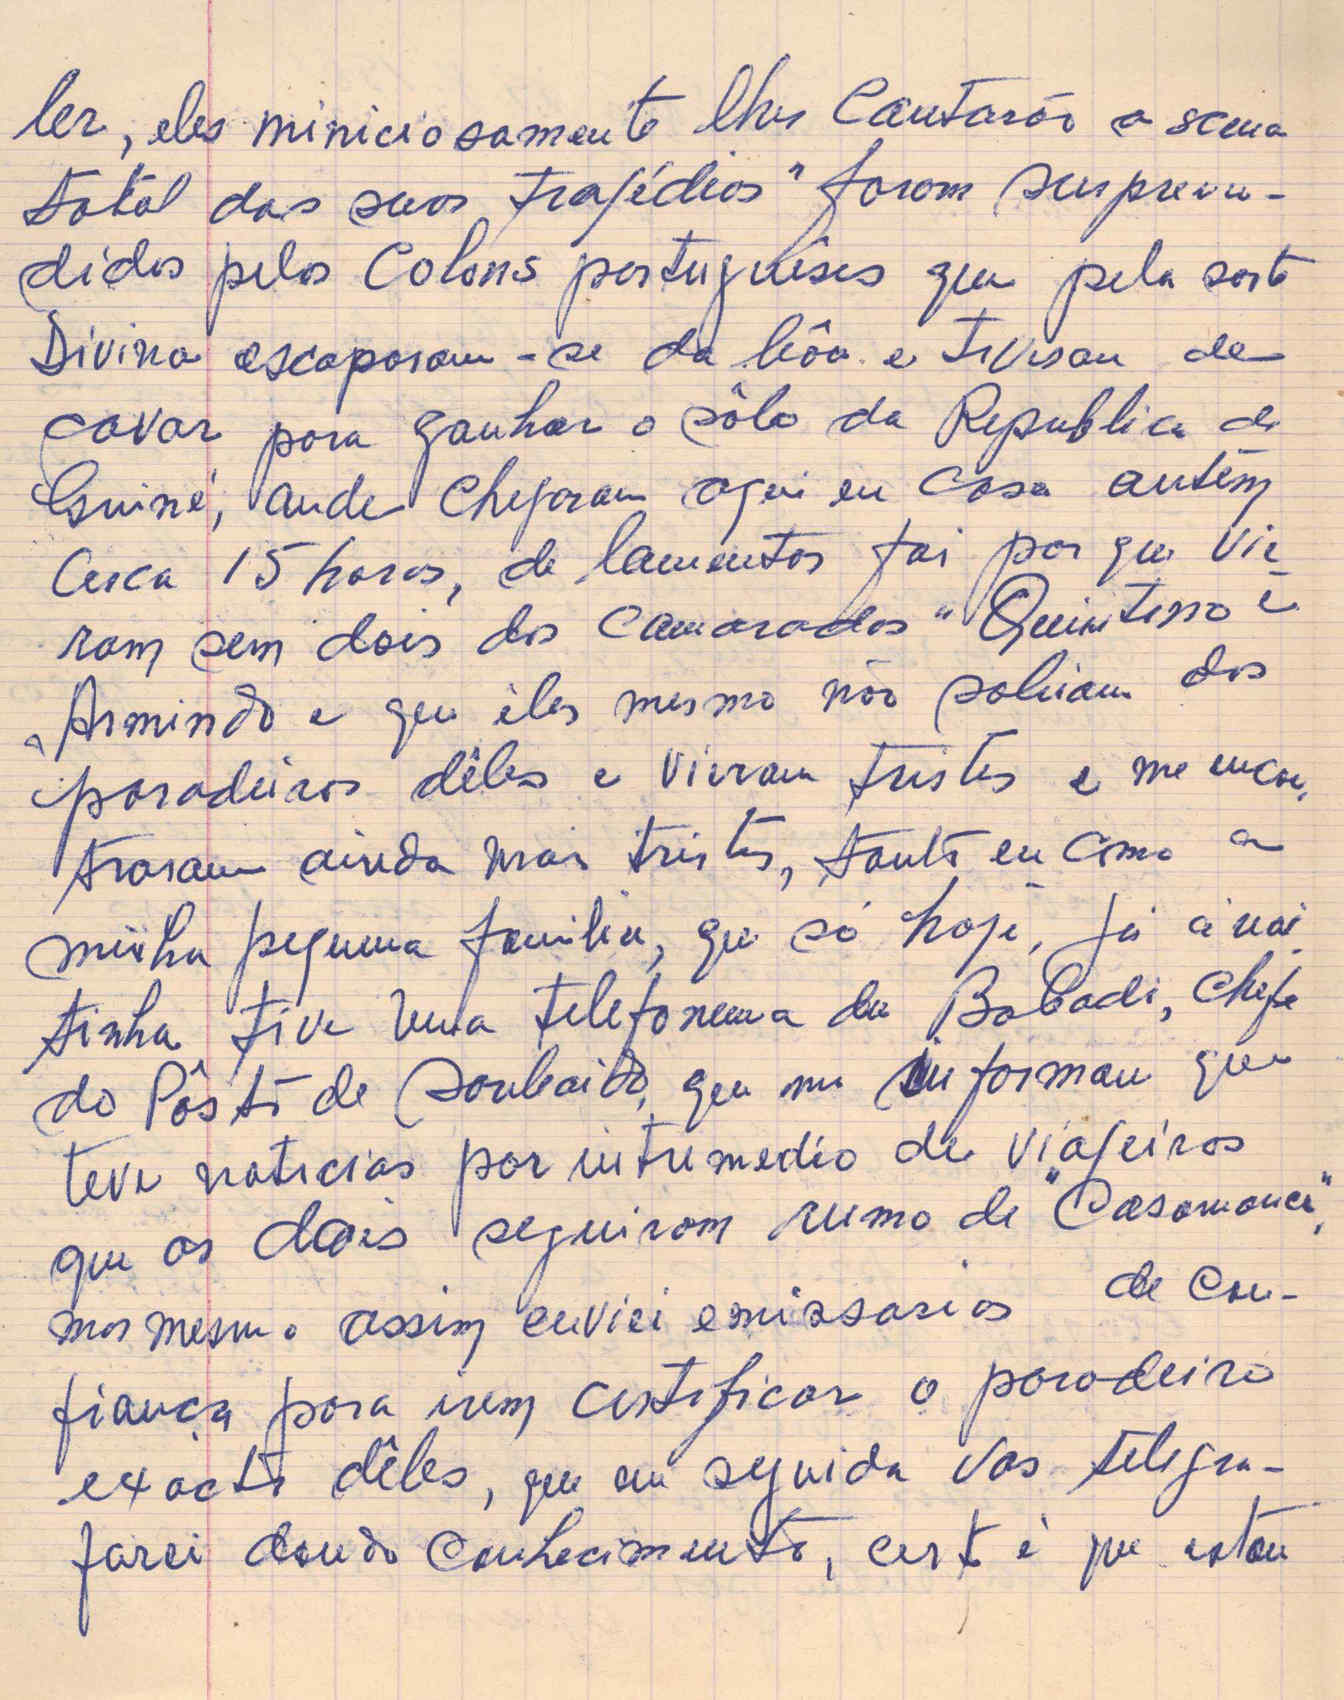 ler, eles miniciosamente lhes Cantarão a scena
total das suas tragédias "foram surpreen-
didos pelos Colons portuguêses que pela sorte
Divina escaparam-se da bôa e tiveram de
cavar para ganhar o sôlo da Republica de
Guiné, aude chegaram aqui em casa antém
Cerca 15 horas, de lamentos foi por que vie-
ram sem dois dos camarados "Quintino e
Armindo e que êles mesmo não sabiam dos
paradeiros dêles e vieram tristes e me encon-
traram ainda mais tristes, tanto eu como a
minha pequena familia, que só hoje, já
tinha tive uma telefonema de Bobadi, Chefe
do Pôsto de Soubaido, que me informou que
teve noticias por intremedio de viajeiros
que os dois seguiram rumo de "Casamance",
mas mesmo assim enviei emissarios de con-
fiança para irem certificar o paradeiro
exacto dêles, que em seguida vos telegra-
farei dando conhecimento, certo é que estou